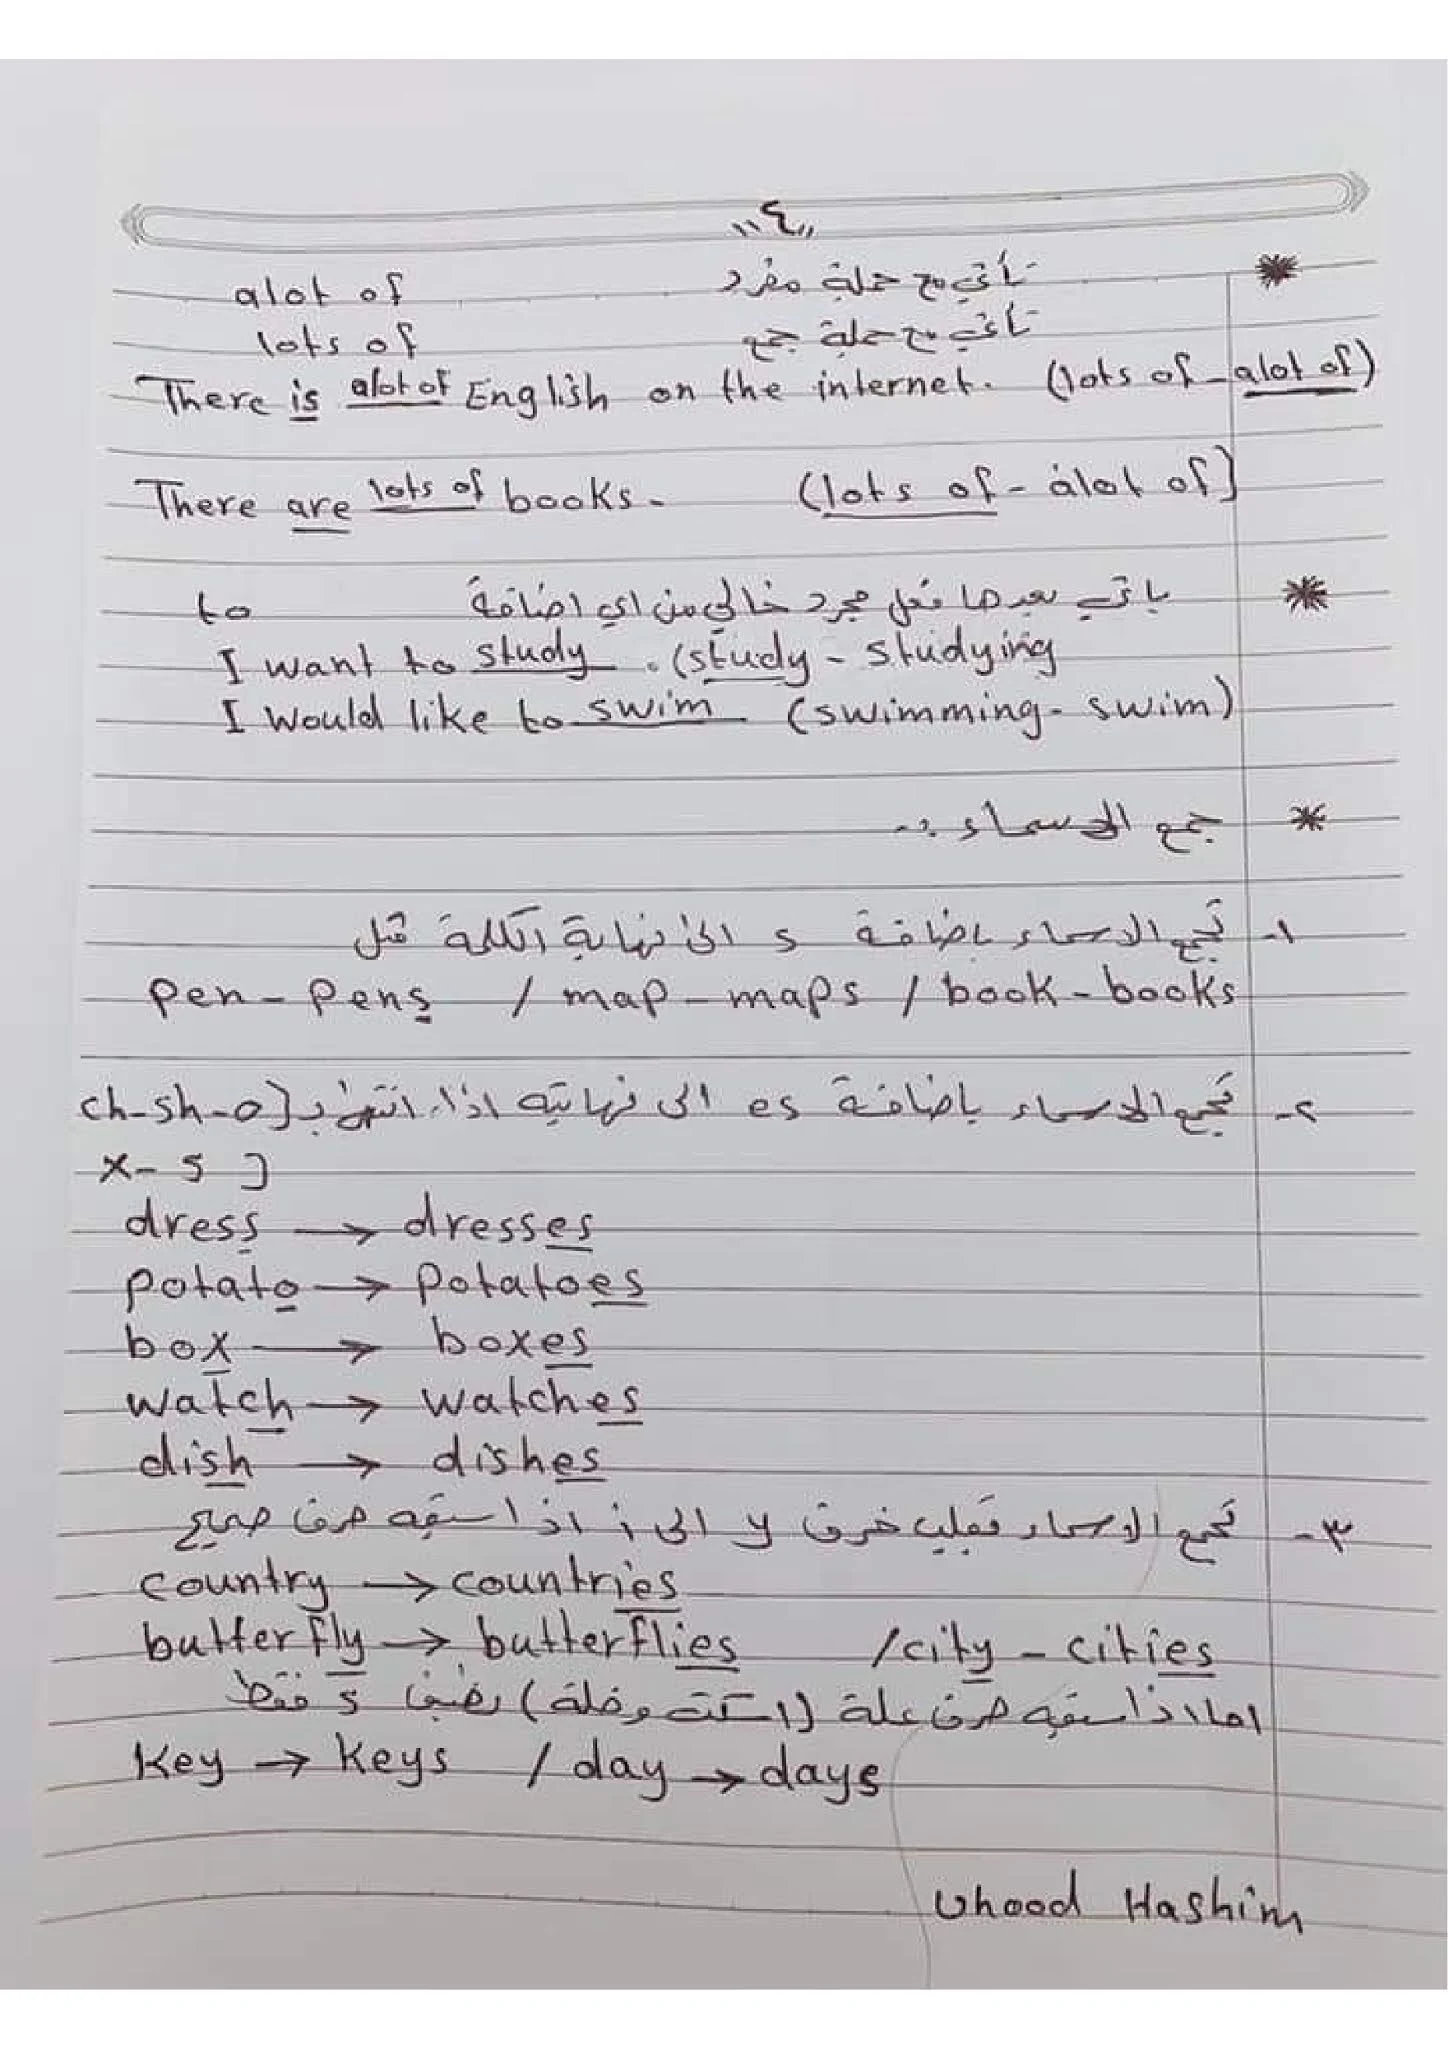 "٤"
* تأتي مع جملة مفرد alot of
تأتي مع جملة جمع lots of
There is alot of English on the internet. (lots of - alot of)
There are lots of books. (lots of - alot of)
* ياتي بعدها فعل مجرد خالي من اي اضافة to
I want to study. (study - studying
I would like to swim (swimming - swim)
* جمع الاسماء :-
١- تجمع الاسماء باضافة s الى نهاية الكلمة مثل
pen - pens / map - maps / book - books
٢- تجمع الاسماء باضافة es الى نهايته اذا انتهى بـ [ch-sh-o
x-s ]
dress → dresses
potato → potatoes
box → boxes
watch → watches
dish → dishes
٣- تجمع الاسماء فقلب حرف y الى i اذا سبقه حرف صحيح
country → countries
butterfly → butterflies /city - cities
اما اذا سبقه حرف علة (اسكت وخلة) نضيف s فقط
Key → keys / day → days
Uhood Hashim